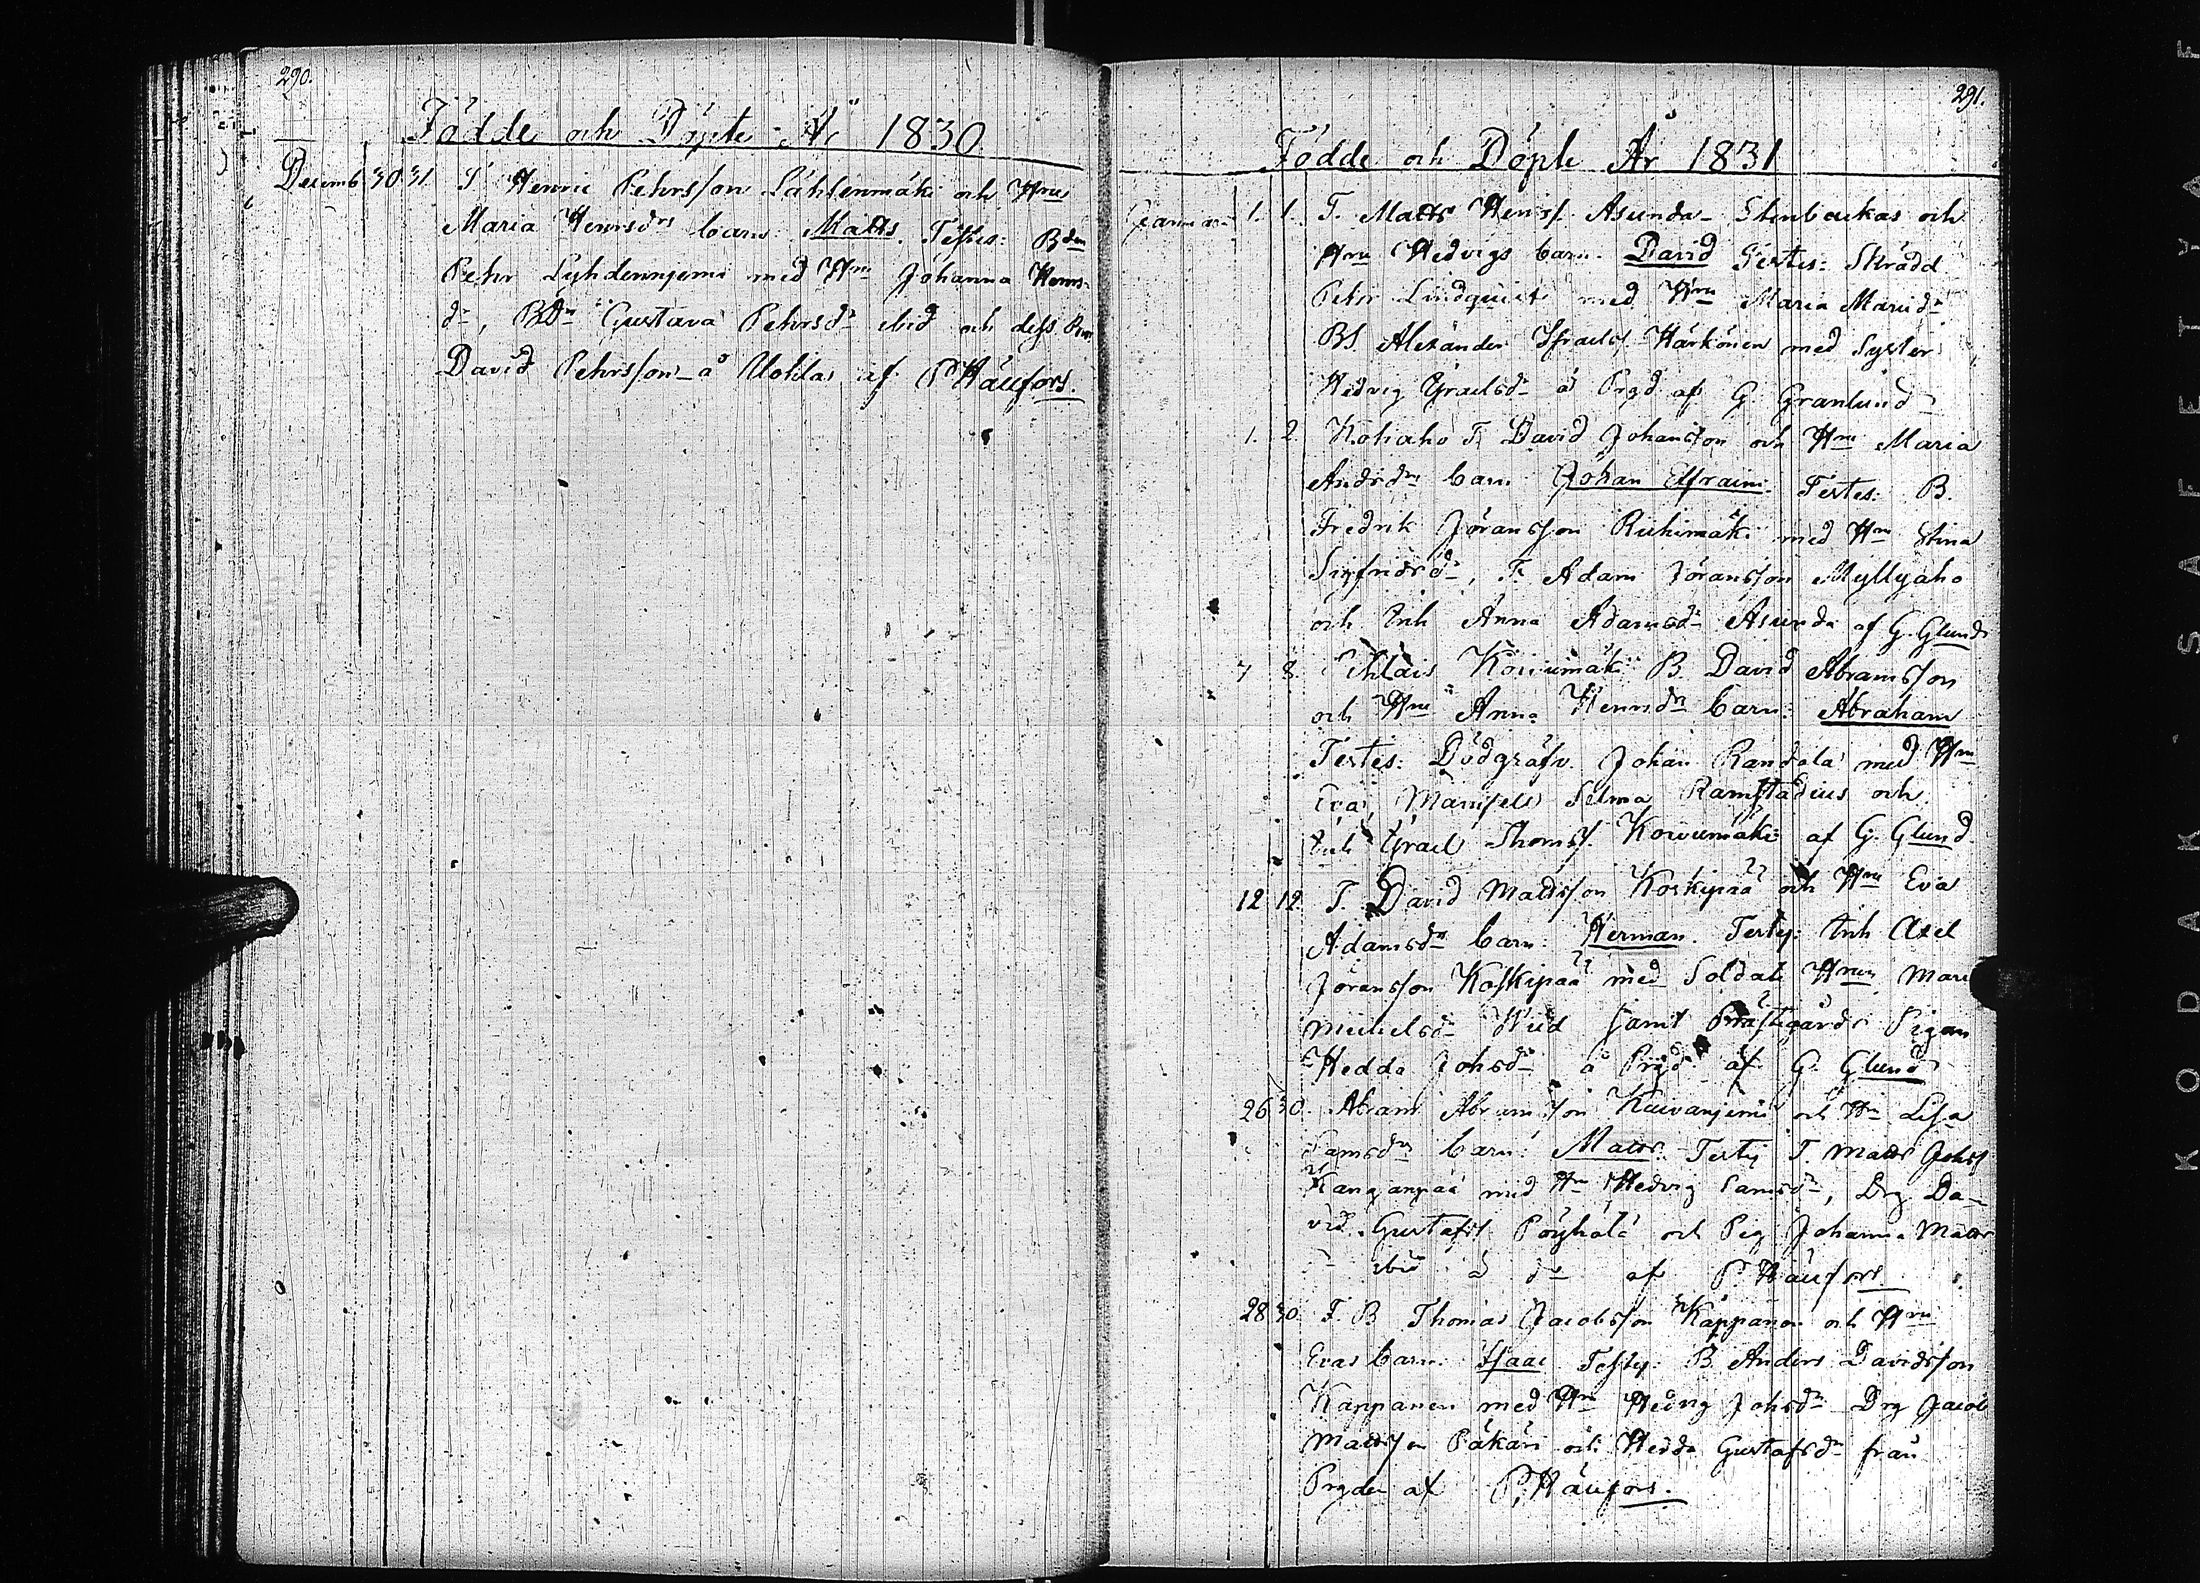 290.
Födde och Döpte År 1830
Decemb 30 31 T Henric Pehrsson Lählenmäki och Hru
Maria Henrsdrs barn: Matts. Testes: Bdn
Pehr Lyhdenniemi med Hru Johanna Henrs-
dr, BDr Gustava Pehrsdr ibid och dess Bror
David Pehrsson å Uotila af P Häufors.
291.
Födde och Döpte År 1831
Januari 1. 1. T. Matts Henrs. Asunda Stenbackas och
Hru Hedvigs barn. David Testes: Skrädd
Pehr Lindquist med Hru Maria Mariedr
BS. Alexander Israels. Härkönen med Syster
Hedvig Israelsdr å Prgd af G Granlund
1. 2. Kohaho T. David Johansson och Hru Maria
Andrsdrs barn Johan Effraim. Testes: B.
Fredrik Jöransson Riihimäki med Hru Stina
Sigfridsdr, T. Adam Jöransson Myllyaho
och Enk Anna Adamsdr Asunda af G. Glund
7 8. B. David Abramsson
och Hru Anna Henrsdrs barn: Abraham
Testes: Dödgräfv. Johan Randala med Hru
Eva, Mamsell Selma Ramstadius och
Enk Israel Thoms. Kowumäki af G. Glund
12 12. T. David Mattsson Koskipää och Hru Eva
Adamsdrs barn: Herman. Testes: Enk Axel
Jöransson Koskipää med Soldat Hrun Maria
Michelsdr Wiid samt Prästgårds Pigan
Hedda Johsdr å Prgd af G. Glund
26 30. Abram Abramsson Kaivaniemi och Hru Lisa
Samsdrs barn: Matts. Testes T. Matts Johs
Kanganpää med Hru Hedvig Samsdr, Drg Da-
vid Gustafs. Pöyhölä och Pig Johanna Matts
dr ibid å dr af P. Häufors
28 30. T. B Thomas Jacobsson Kappanen och Hru
Evas barn. Isaac Testes: B. Anders Davidsson
Kappanen med Hru Hedvig Johsdr Drg Jacob
Mattsson Päkäri och Hedda Gustafsdr från
Prgden af P. Häufors.
KODAK SAFETY A F